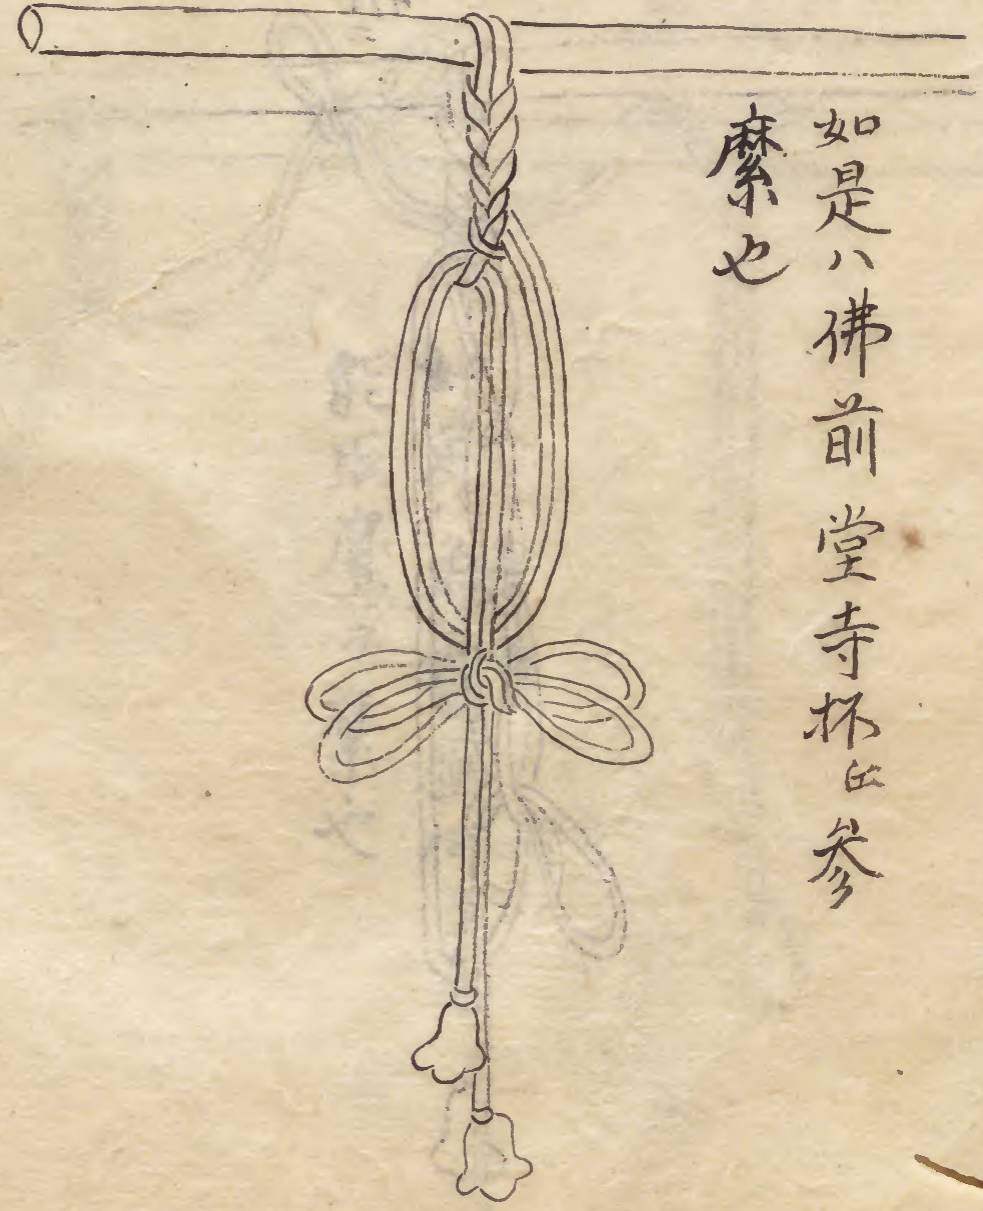 如是ハ佛前堂寺杯ニ参
縻也